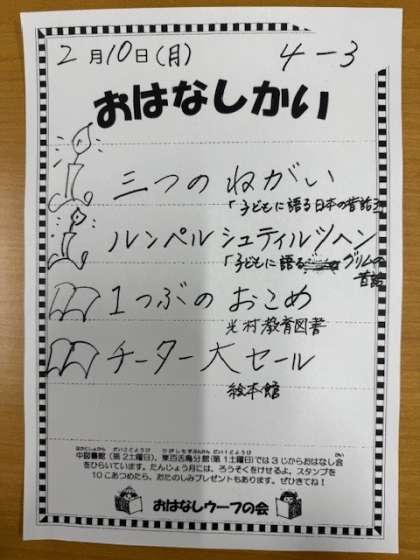 2月10日(月) 4-3
おはなしかい
三つのねがい
「子どもに語る日本の昔話3
ルンペルシュティルツヘン
「子どもに語るグリムの
昔話
1つぶのおこめ
光村教育図書
チーター大セール
絵本館
中図書館(第2土曜日)、東百舌鳥分館(第1土曜日)では3じからおはなし会
をひらいています。たんじょう月には、ろうそくをけせるよ。スタンプを
10こあつめたら、おたのしみプレゼントもあります。ぜひきてね!
おはなしウーフの会